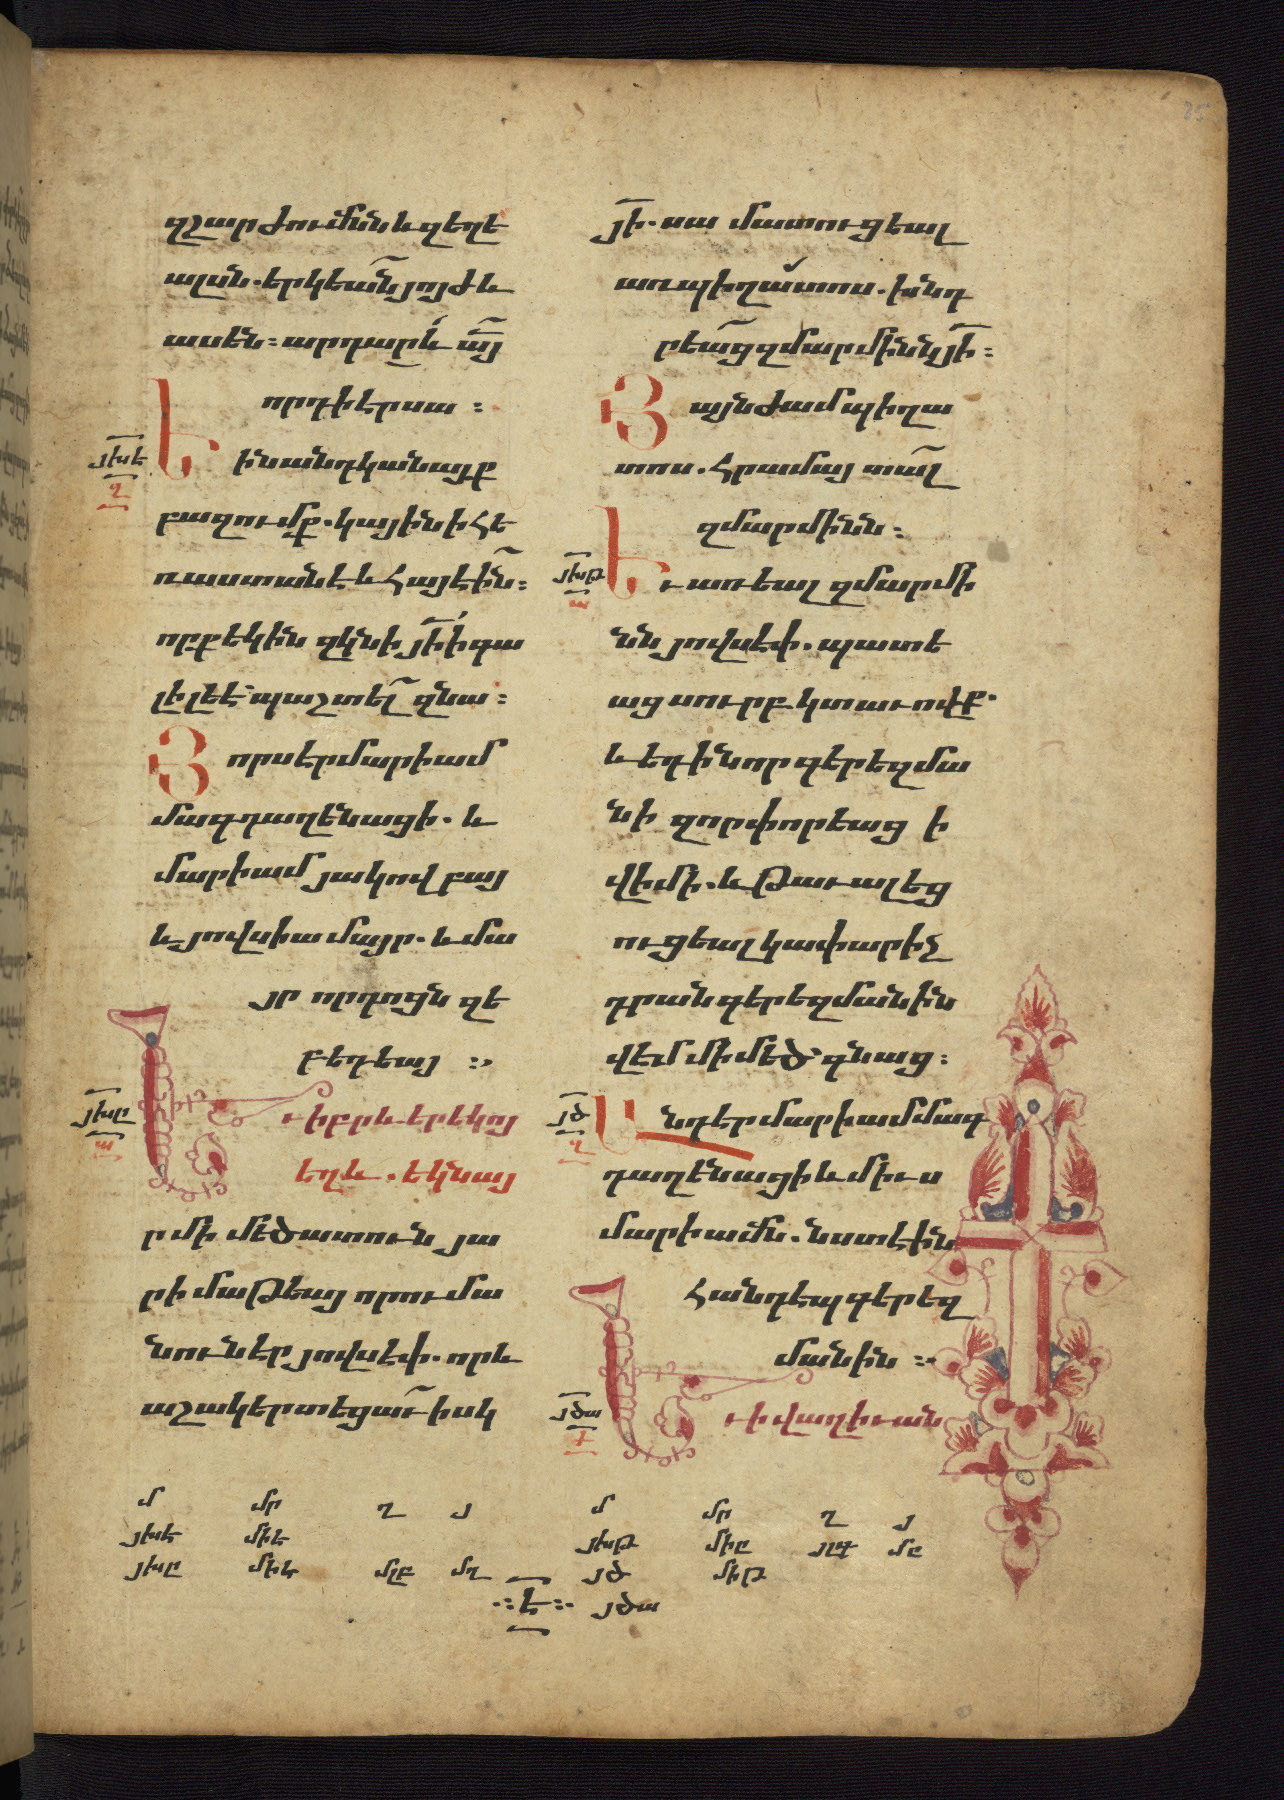 85
զշարժումնն և զեղե
ալսն. երկեան̃ յոյժ և
ասեն: արդարև ա̃յ
որդի էր սա:
յխե
զ
Եին անդ կանայք
բազումք. կային ի հե
ռաստանէ և հայէին̃:
որք եկին զկնի յ̃ի ի գա
լիլեէ պաշտել̃ զնա:
Յորս էր մարիամ
մագդաղէնացի. և
մարիամ յակովբայ
և յովսիա մայր. և մա
յր որդոցն զե
բեդեայ:
յխը
ա
Եւ իբրև երեկոյ
եղև. եկն այ
ր մի մեծատուն յա
րիմաթեայ որում ա
նուն էր յովսէփ. որ և
աշակերտեցաւ̃ իսկ
յ̃ի. սա մատուցեալ
առ պիղատոս. խնդ
րեաց̃ զմարմինն յ̃ի:
Յայնժամ պիղա
տոս. հրամայ տալ̃
զմարմինն:
յխթ
ա
Եւ առեալ զմարմի
նն յովսէփ. պատե
աց սուրբ կտաւովք.
և եդ ի նոր գերեզմա
նի զոր փորեաց ի
վիմի. և թաւալեց
ուցեալ կափարիչ
դրան գերեզմանին
վէմ մի մեծ գնաց:
յծ
զ
Անդ էր մարիամ մագ
դաղէնացի և միւս
մարիամն. նստէին
հանդեպ գերեզ
մանին:
յծա
ժ
Եւ ի վաղիւան
մ մր ղ յ մ մր ղ յ
յխե միե յխթ միը յլգ մը
յխը միե մլբ մղ յծ միթ
Ե յծա